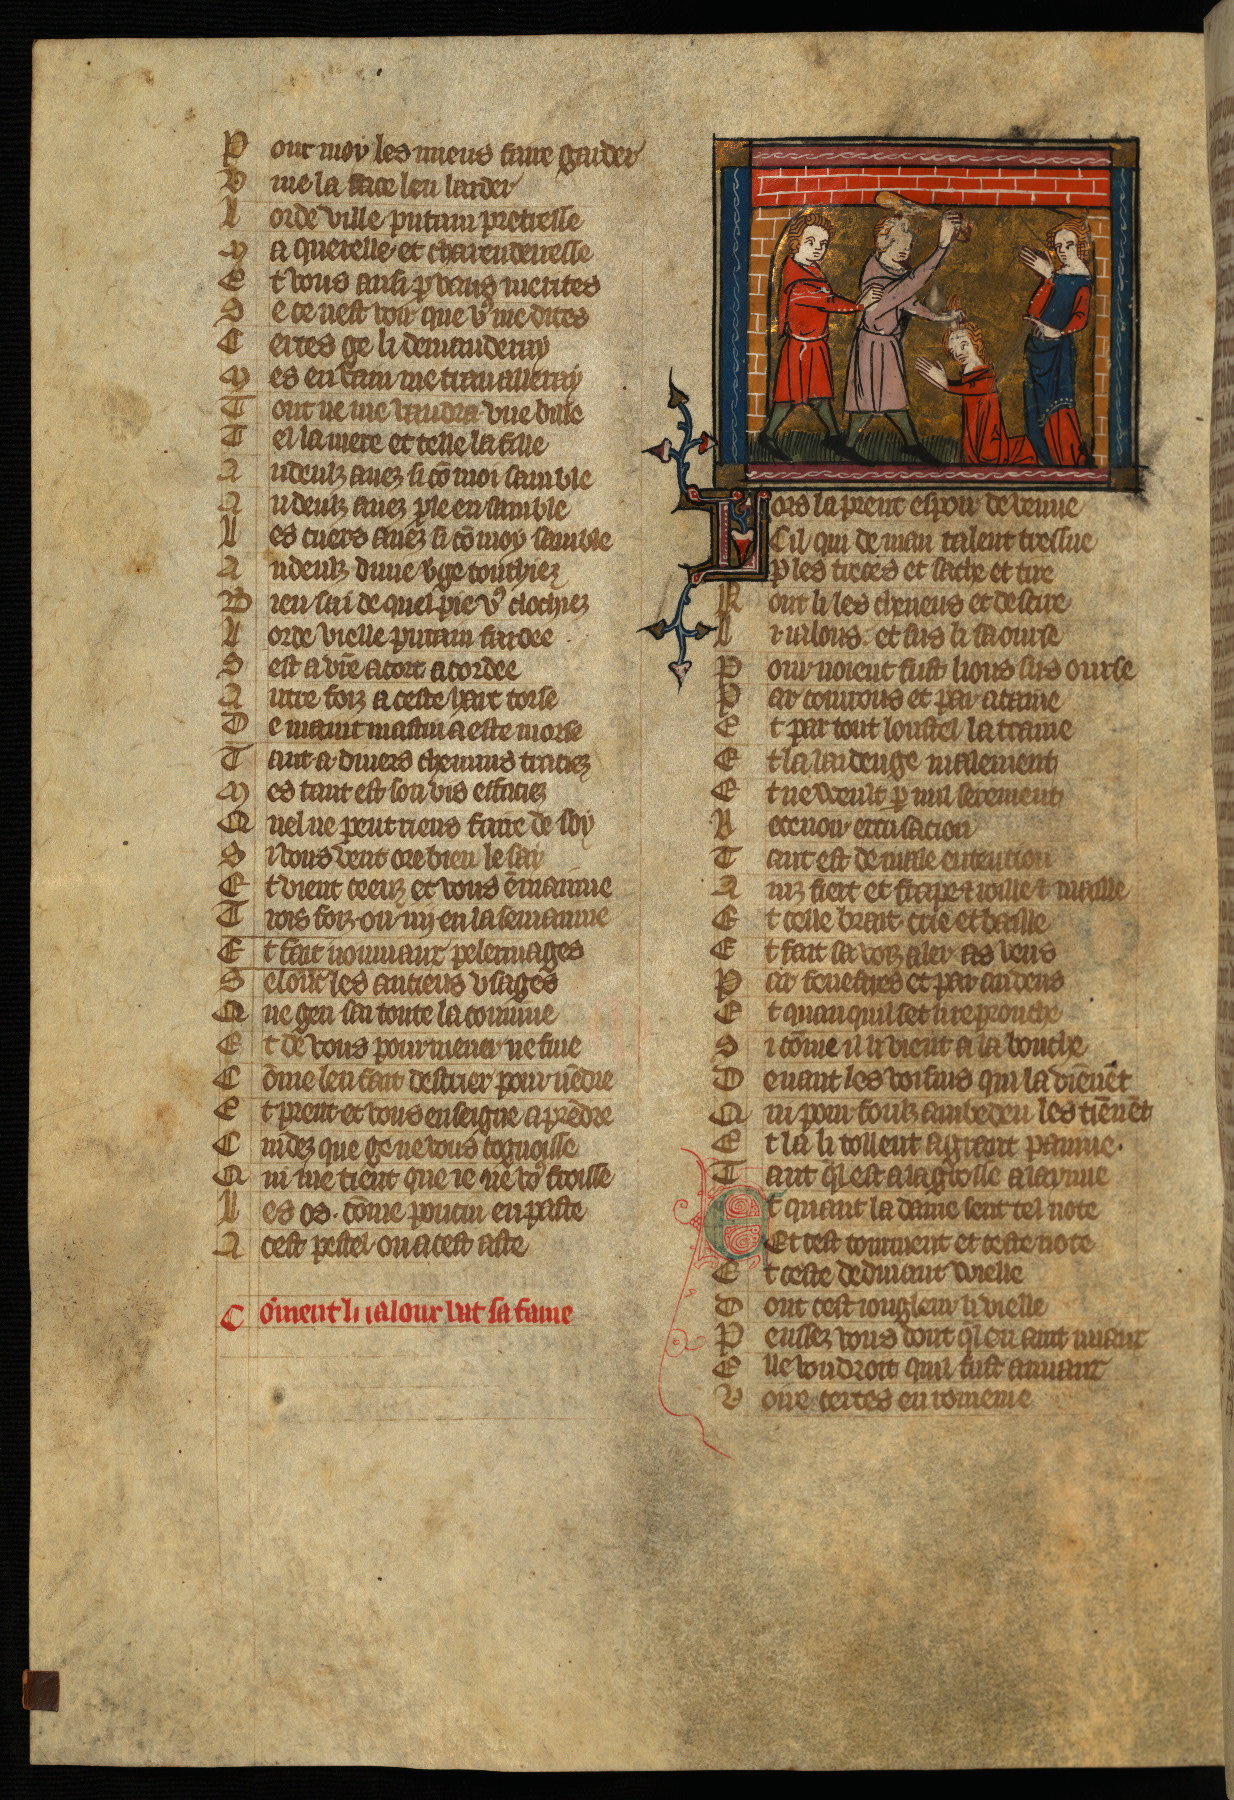 Pour moy les mieus faire garder
Vue la face leu larder
Lorde ville putain pretresse
Ma querelle et
Et vous ausi p vraus merites
Se ce nest voir que vꝰ me dites
Certes ge li demanderay
Mes en vain me travalleray
Tout ne me vaudra vne bille
Tel la mere et telle la fille
Andeulz auez si cō moi samble
Andeulz auez ple ensamble
Les cuers auez si cō moy samble
Andeulz dune vge touchiez
Bien sai de quel pie vꝰ clochiez
Lorde vielle putain fardee
Sest a vr̄e acort acordee
Autre foiz a ceste hart torse
De maint mastin a este morse
Tant a divers chemins traciez
Mes tant est son vis effaciez
Quel ne peut riens faire de soy
Si vous vent ore bien le sai
Et vient ceenz et vous ēmainne
Trois foiz ou iiij en la semainne
Et faint nouuiaux pelerinages
Selonc les anciens vsages
Que gen sai toute la couuine
Et de vous pourmener ne fine
Cōme len fait destrier pour vēdre
Et prent et vous enseigne a prēdre
Cuidez que ge ne vous cognoisse
Qui me tient que ie ne vꝰ froisse
Les os cōme poucin en paste
A cest pestel ou a cest aste
Cōment li ialoux bat sa fame
Lors la prent espoir de venue
Cil qui de mau talent tressue
Par les treces et sache et tire
Ront li les cheueus et descire
Li ialous et sus li saourse
Pour noient fust lions sus ourse
Par courrous et par ataine
Et par tout loustel la traine
Et la laidenge malement
Et ne veult p nul serement
Receuoir excusacion
Tant est de male entencion
Ainz fiert et frape et roille et maille
Et celle brait crie et baaille
Et fait sa voiz aler as vens
Par fenestres et par audens
Et quan quil set li reprouche
Si cōme il li vient a la bouche
Deuant les voisins qui la viēnēt
Qui pour foulz ambedeu les tiēnēt
Et la li tollent a grant painne
Tant ql est a la grosse alainne
Et quant la dame sent tel note
Et cest tourment et ceste note
Et ceste deduiant vielle
Dont cest iougleur li vielle
Penssez vous dont ql en aint miaux
Elle voudroit quil fust a miaux
Voire certes en romenie